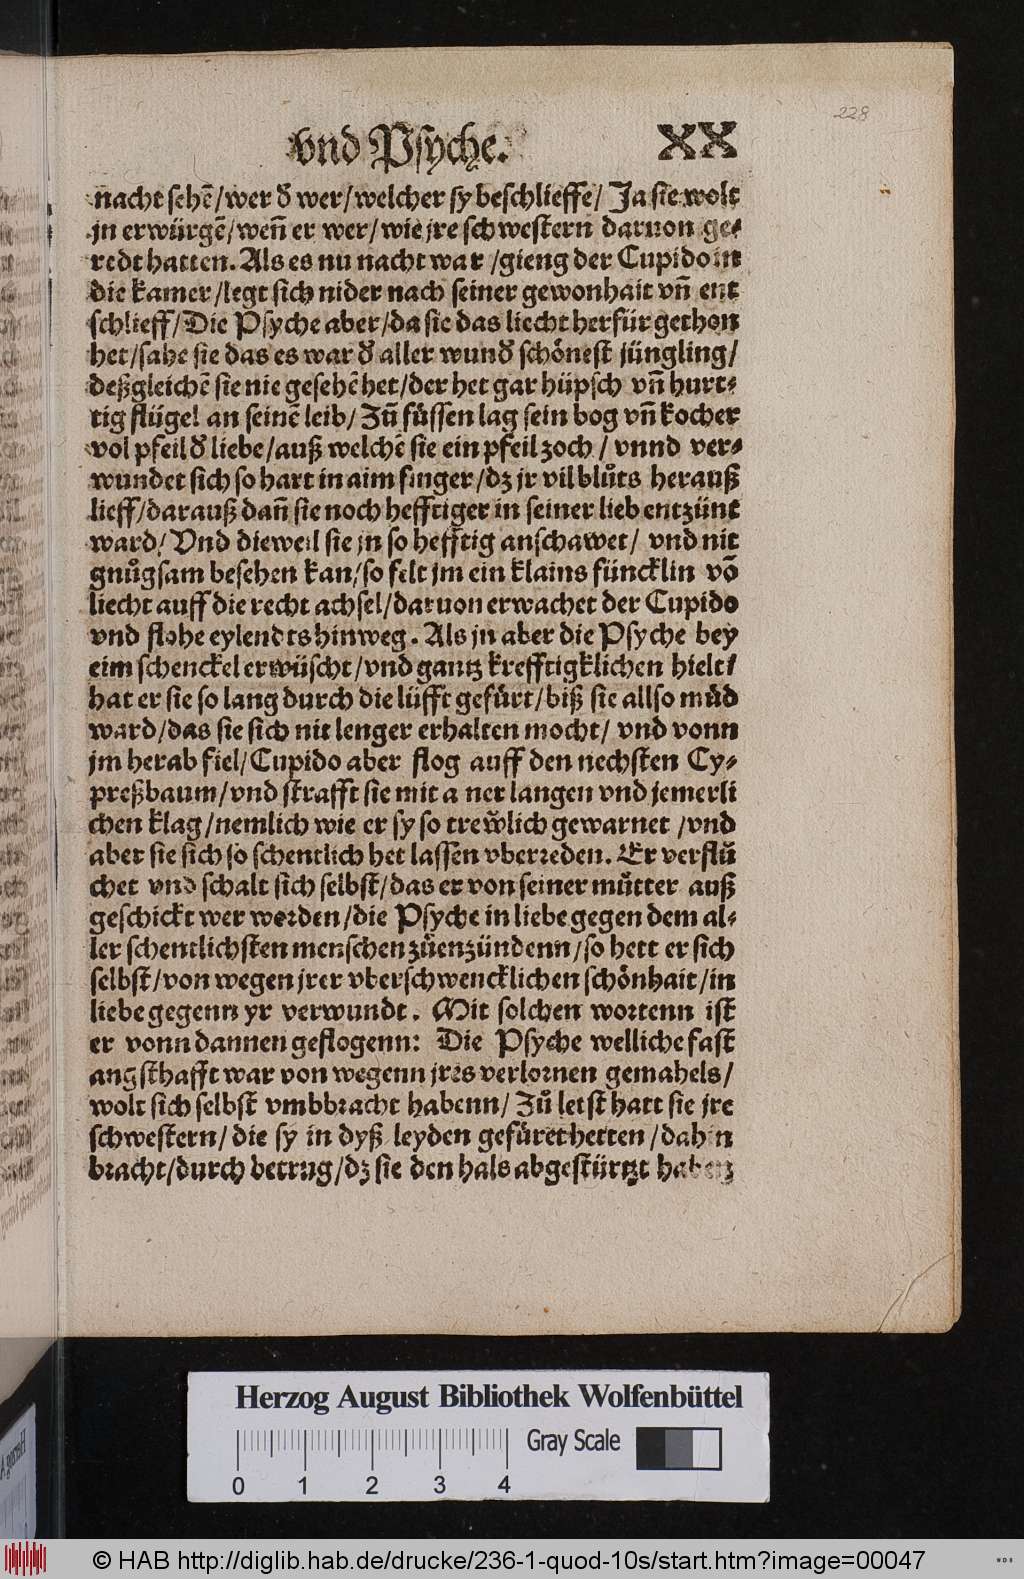 228
vnd Psyche. XX
nacht sehē/wer ð wer/welcher sy beschlieffe/ Ja sie wolt
jn erwürgē/wen̄ er wer/wie jre schwestern daruon ge⸗
redt hatten. Als es nu nacht war /gieng der Cupido in
die kamer/legt sich nider nach seiner gewonhait vn̄ ent
schlieff/Die Psyche aber/da sie das liecht herfür gethon
het/sahe sie das es war ð aller wunð schoͤnest jüngling/
deßgleichē sie nie gesehē het/der het gar hüpsch vn̄ hurt⸗
tig flügel an seinē leib/ Zuͦ fuͤssen lag sein bog vn̄ kocher
vol pfeil ð liebe/auß welchē sie ein pfeil zoch/ vnnd ver⸗
wundet sich so hart in aim finger/dz jr vil bluͦts herauß
lieff/darauß dan̄ sie noch hefftiger in seiner lieb entzünt
ward/ Vnd dieweil sie jn so hefftig anschawet/ vnd nit
gnuͦgsam besehen kan/so felt jm ein klains füncklin vō
liecht auff die recht achsel/daruon erwachet der Cupido
vnd flohe eylendts hinweg. Als jn aber die Psyche bey
eim schenckel erwüscht/vnd gantz krefftigklichen hielt/
hat er sie so lang durch die lüfft gefuͤrt/biß sie allso muͤd
ward/das sie sich nit lenger erhalten mocht/ vnd vonn
jm herab fiel/Cupido aber flog auff den nechsten Cy⸗
preßbaum/vnd strafft sie mit a ner langen vnd jemerli
chen klag/nemlich wie er sy so trew̆lich gewarnet /vnd
aber sie sich so schentlich het lassen vberreden. Er verfluͦ
chet vnd schalt sich selbst/das er von seiner muͦtter auß
geschickt wer worden/die Psyche in liebe gegen dem al⸗
ler schentlichsten menschen zuͦenzündenn/so hett er sich
selbst/von wegen jrer vberschwencklichen schoͤnhait/in
liebe gegenn yr verwundt. Mit solchen wortenn ist
er vonn dannen geflogenn: Die Psyche welliche fast
angsthafft war von wegenn jres verlornen gemahels/
wolt sich selbst vmbbracht habenn/ Zuͦ letst hatt sie jre
schwestern/die sy in dyß leyden gefuͤret hetten/dahin
bracht/durch betrug/dz sie den hals abgestürtzt haben
Herzog August Bibliothek Wolfenbüttel
Gray Scale
0 1 2 3 4
© HAB http://diglib.hab.de/drucke/236-1-quod-10s/start.htm?image=00047